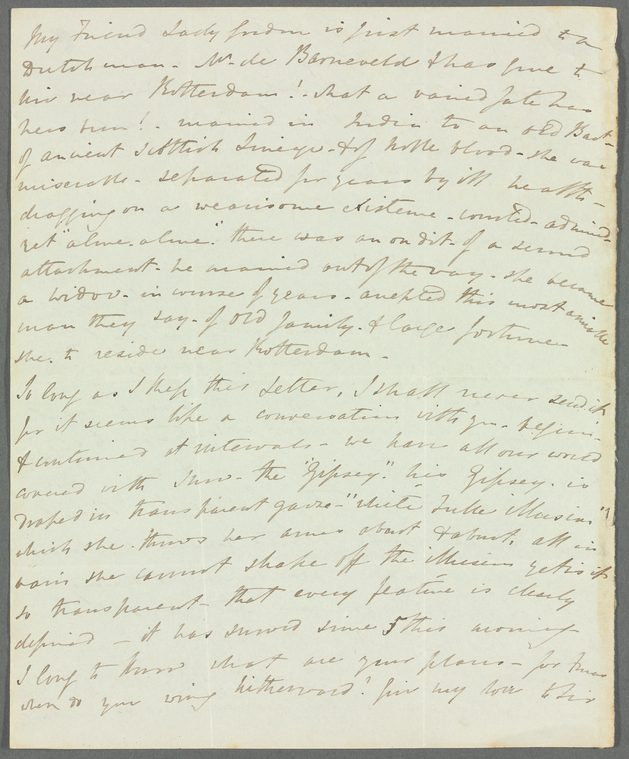 My Friend Lady Gordon is just married to a
Dutchman - Mr. de Barneveld & has gone to
live near Rotterdam! - what a varied fate has
hers been! - married in India to an old Bart -
of ancient Scottish Lineage - & of Noble blood - she was
miserable - separated for years by ill health -
dragging on a wearisome existence - courted - admired -
yet "alone - alone". there was an on dit - of a second
attachment - he married out of the way - she became
a widow - in course of years - accepted this most amiable
man they say - of old family - & large fortune -
she - to reside near Rotterdam -
So long as I keep this Letter, I shall never send it
for it seems like a conversation with you - begun -
& continued at intervals - we have all our world
covered with snow - the "Gipsey". his Gipsey - is
draped in transparent gauze - "white Tulle illusion"
which she - throws her arms about & about, all in
vain she cannot shake off the illusion yet is it
so transparent - that every feature is clearly
defined - it has snowed since 5 this morning
I long to know what are your plans - for
when do you wing hitherward? Give my love to